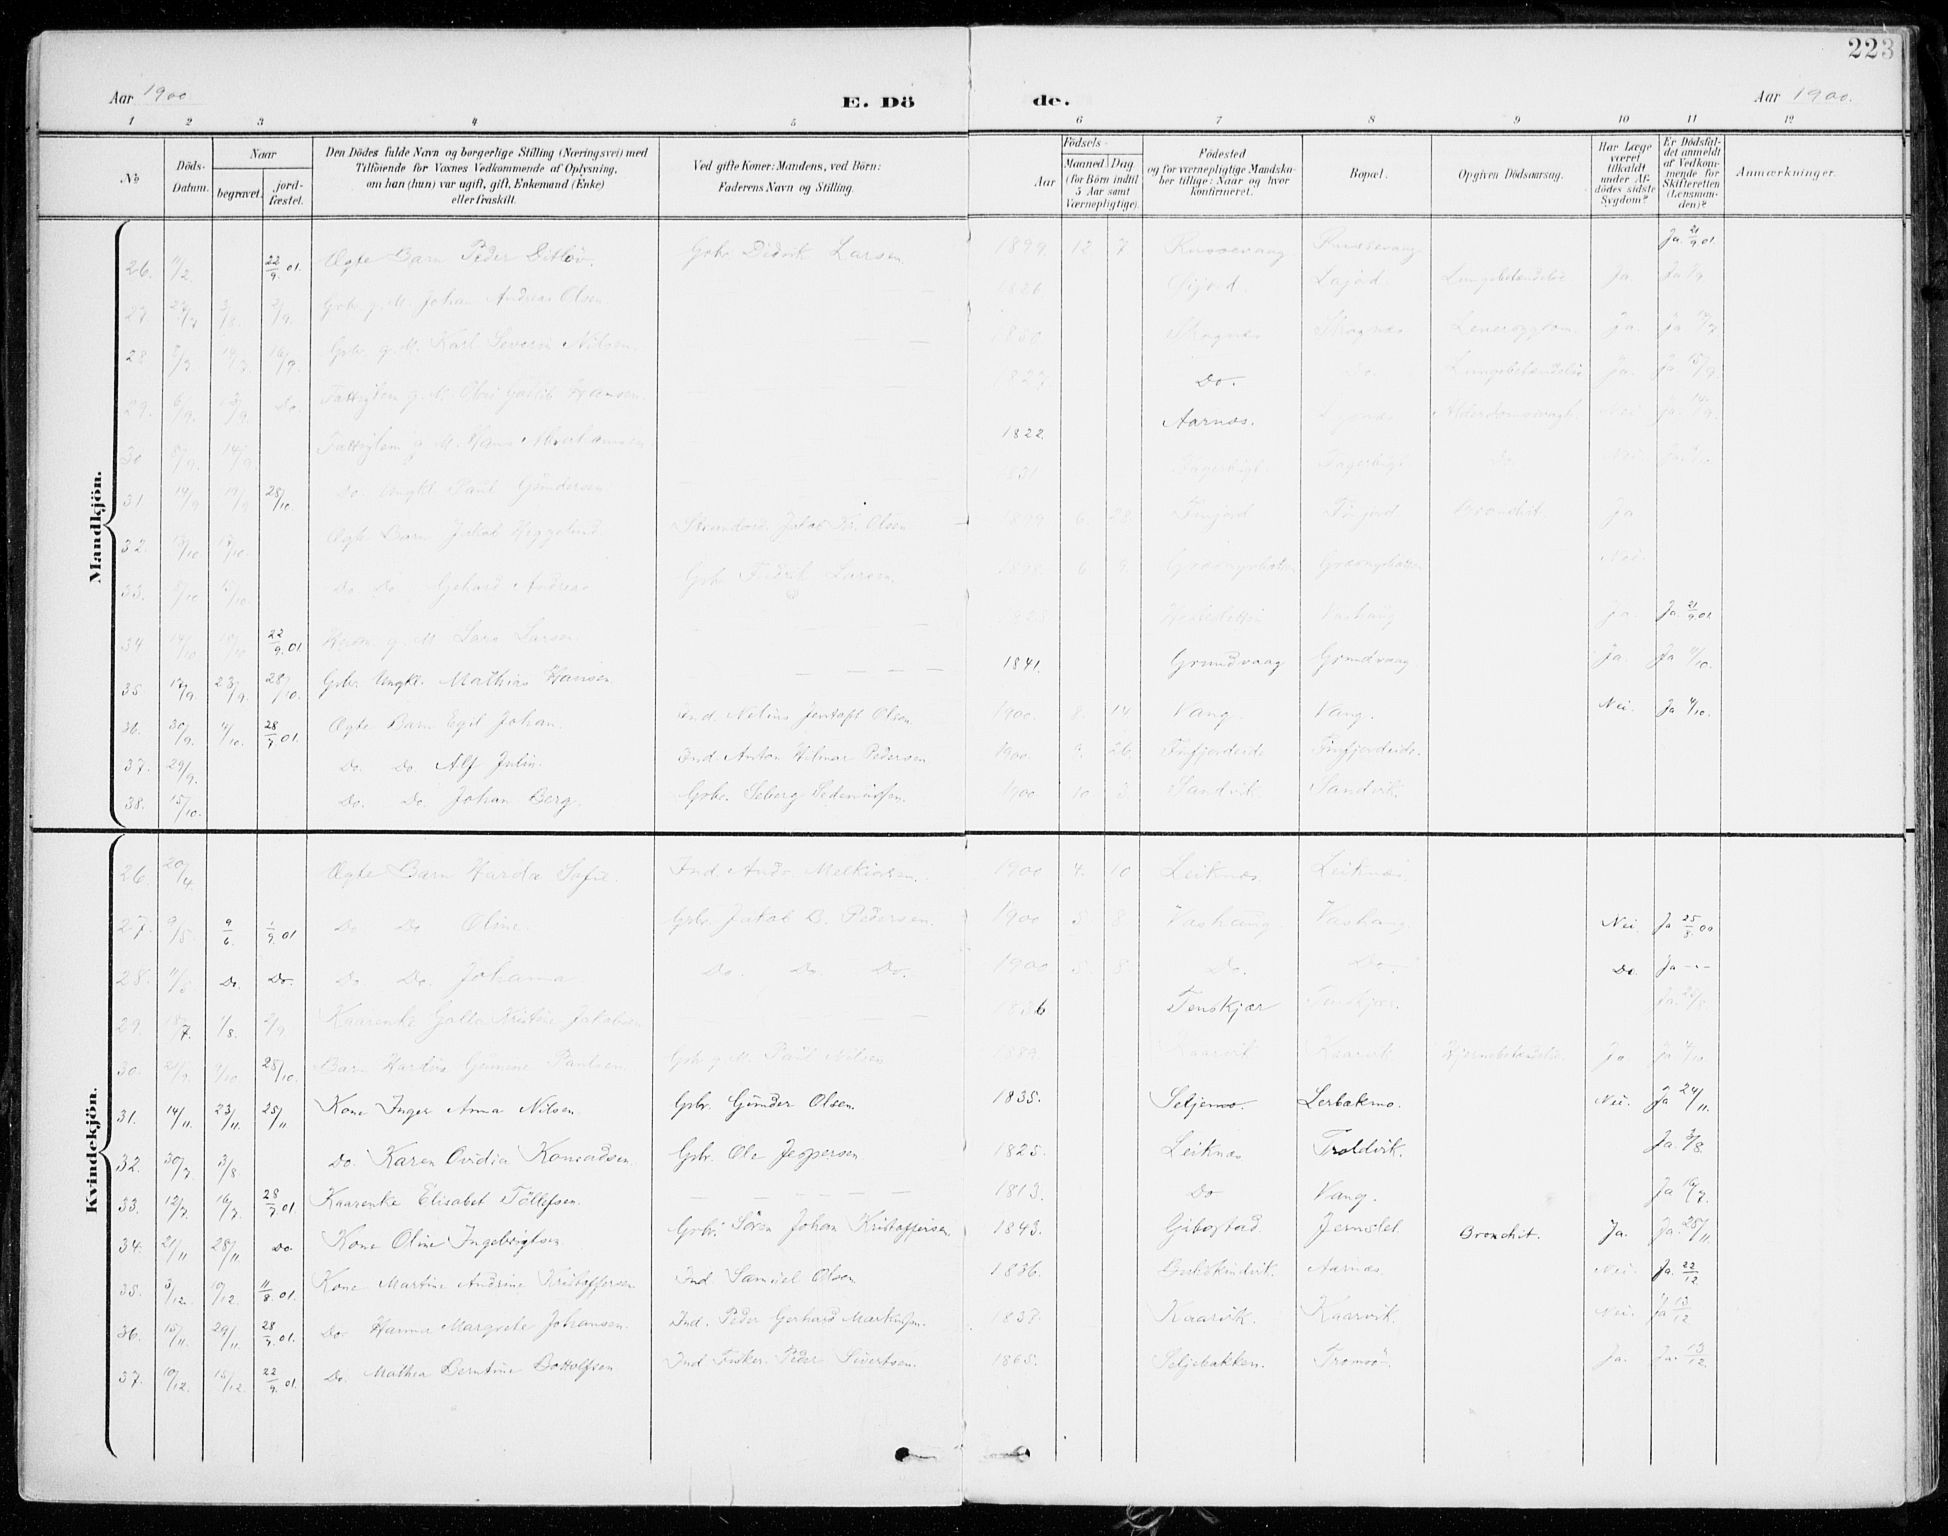 223
Aar 1900 E. Dö de. Aar 1900.
1 2 3 4 5 6 7 8 9 10 11 12
No
Döds-Datum.
Naar
begravet.
jord-fæstet.
Den Dödes fulde Navn og borgerlige Stilling (Næringsvei) med
Tilföiende for Voxnes Vedkommende af Oplysning,
om han (hun) var ugift, gift, Enkemand (Enke)
eller fraskilt.
Ved gifte Koner: Mandens, ved Börn:
Faderens Navn og Stilling.
Födsels-
Aar
Maaned Dag
(for Börn indtil
5 Aar samt
Værnepligtige).
Födested
og for værnepligtige Mandskaber tillige: Naar og hvor
konfirmeret.
Bopæl.
Opgiven Dödsaarsag.
Har Læge
været
tilkaldt
under Afdödes sidste
Sygdom?
Er Dödsfaldet anmeldt
af Vedkommende for
Skifteretten
(Lensmanden)?
Anmærkninger.
Mandkjön.
26. 11/2 22/9 01. Ægte Barn Peder Ditløv. Gbr. Didrik Larsen 1899 12 7 Russevaag Russevaag Ja 21/9 01.
27. Gbr. g. M. Johan Andreas Olsen 1826 Øijord Lajord Lungebetændelse Ja
28 Gbr. g. M. Karl Severin Nilsen 1850 Skognæs Skognæs Leversygdom Ja
29. 6/9 Do. Fattiglem g. M. Hansen. 1827 Do. Do. Lungebetændelse Ja. Ja 15/9.
30 8/9. 14/9. Fattiglem g. M. Hans 1822 Aarnæs. Alderdomssvagh. Nei Ja 14/9.
31 14/9 19/9 28/10. Do. Ungkl. Paul Gundersen 1831 Fagerbugt Fagerbugt Do. Nei
32. Ægte Barn Jakob Heggelund. Strandsid. Jakob Kr. Olsen 1899 6. 28. Finjord Finjord Bronchit. Ja
33. 8/10 15/10. Do Do Gerhard Andreas Gbr. Fredrik Larsen. 6 9. Græsmyrbotten Græsmyrbotten Nei.
34 14/10 18/10 22/9 01. g. M. Lars Larsen Vashaug Ja Ja 21/9 01.
35. 17/9 23/9. 28/10. Gbr. Ungkl. Mathias Hansen 1841. Grundvaag Grundvaag. Ja. Ja 11/10.
36. 30/9. 4/10. 28/7 01. Ægte Barn Egil Johan. Ind. Nelius Jentoft Olsen 1900. 8. 14 Vang. Vang. Nei. Ja 4/10.
37. 29/9. Do. Do. Alf Julin. Ind. Anton Hilmar Pedersen 1900. 9. 26. Finfjordeide Finfjordeide.
38. 15/10. Do. Do. Johan Berg. Gbr. Seberg Sedeniussen. 1900 10 3. Sandvik. Sandvik.
Kvindekjön.
26. 20/4 Ægte Barn Harda Sofie. Ind. Andr. Melkiorsen. 1900 4. 10 Leiknæs. Leiknæs.
27. 9/5 9/6. 1/9. 01 Do Do Oline. Gbr. Jakob B. Pedersen. 1900 5 8 Vashaug. Vashaug. Nei. Ja 25/8. 00
28. 11/5 Do. Do. Do Do. Johanna Do. Do. Do. 1900 5 8. Do. Do. Do. Ja - . -
29. 18/7. 1/8. 2/9 Kaarenke Kristine Jakobsen 1836 Tenskjær Tenskjær.
30. 21/9. 4/10. 28/10. Barn Hardis Paulsen. Gbr. g. M. Paul Nilsen 1889. Kaarvik Kaarvik. Hjernebetændelse. Ja Ja 4/10
31. 14/11. 23/11. 25/11 Kone Inger Anna Nilsen Gbr. Gunder Olsen. 1835. Seljemo. Lerbækmo. Nei. Ja 24/11.
32. 30/7 3/8 Do. Karen Ovidia Konradsen. Gbr. Ole Jespersen 1825. Leiknæs Troldvik. Ja. 3/8.
33. 12/7. 16/7. 28/7. 01. Kaarenke Elisabet Tollefsen. 1813. Do Vang. Ja 16/7.
34. 21/11 28/11 Do Kone Oline Ingebrigtsen Gbr. Sören Johan Kristoffersen 1843. Gibostad. Jernslet Bronchit. Ja. Ja. 28/11.
35. 3/12. 10/12. 11/8. 01. Kone Martine Andrine Kristoffersen Ind. Samuel Olsen 1836. Aarnæs. Nei. Ja. 22/12
36. 15/11. 29/11 28/7. 01. Do. Hanna Margrete Johansen. Ind. Peder Gerhard Markusen. 1837. Kaarvik. Kaarvik. Nei. Ja 13/12
37. 10/12. 15/12. 22/9. 01. Do. Mathea Berntine Bottolfsen Ind. Fisker. Peder Sivertsen. 1865. Seljebakken. Tromsö. Ja. Ja. 13/12.